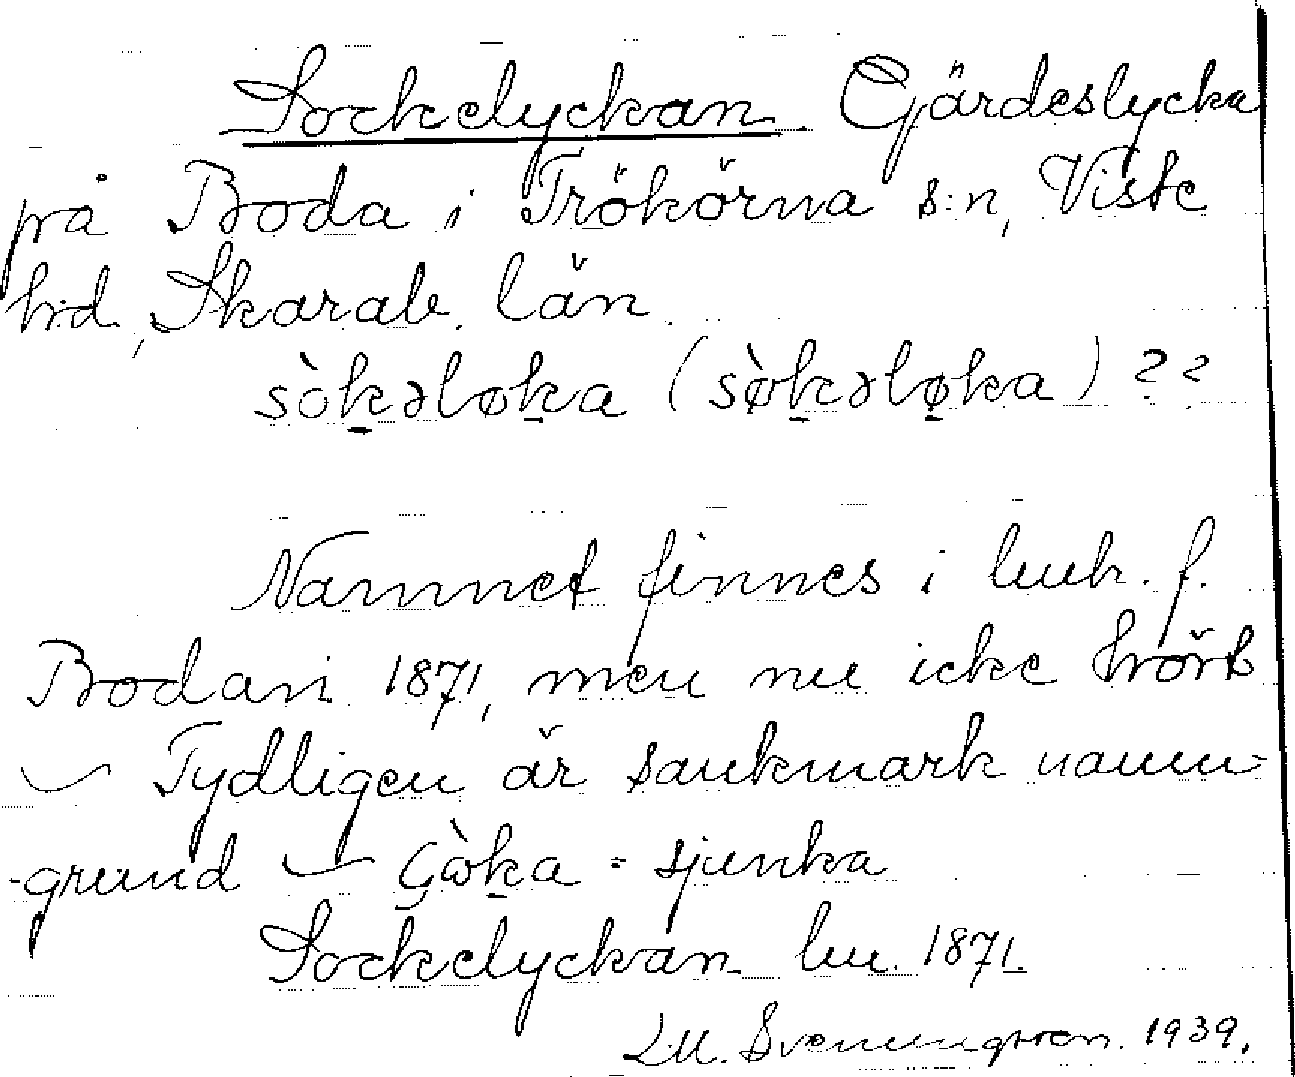 Sockelyckan Gärdeslycka
på Boda i Trökörna s:n, Viste
hd, Skarab. län
sòkəløka (sø̀kəløka) ??
Namnet finnes i lmh. f.
Bodan 1871, men nu icke hört
– Tydligen är sankmark namn-
-grund – çɷ̀ka = sjunka
Sockelyckan lm. 1871.
L.M. Svenungsson. 1939.